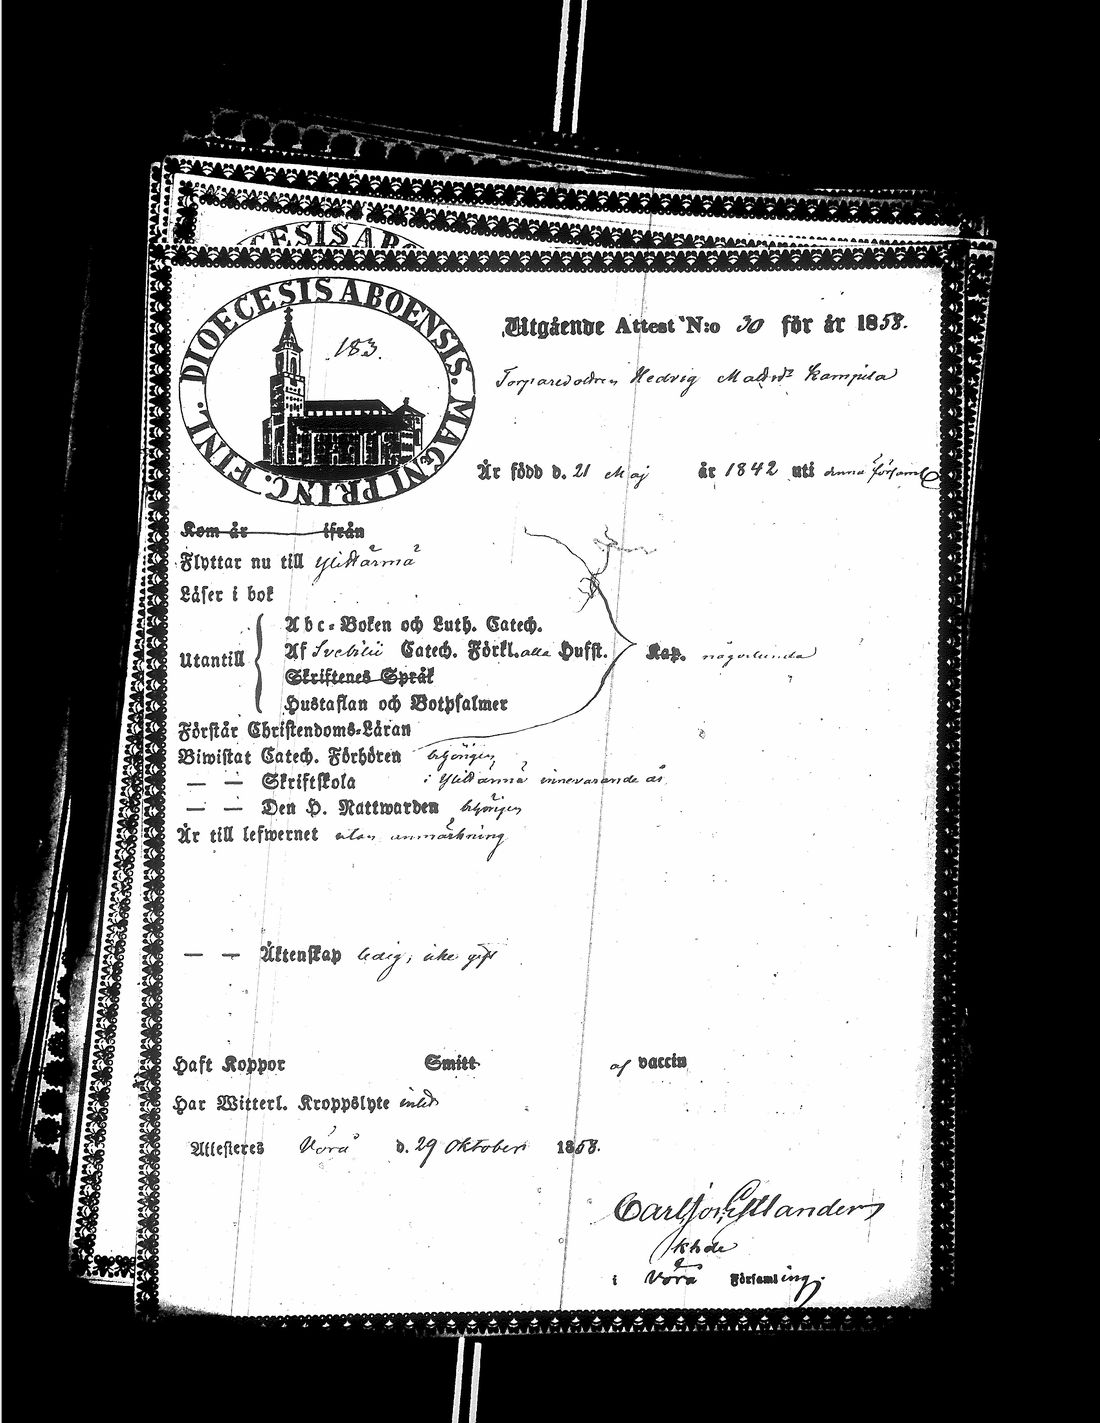 CESIS ABO
DIOECESIS ABOENSIS. MAGNI PRINC. FINL.
183.
Utgående Attest N:o 30 för år 1858.
Torparedottren Hedvig Kampila
Är född d. 21 Maj år 1842 uti denna församl
Kom år ifrån
Flyttar nu till Ylistarmå
Läser i bok
Utantill
Abc-Boken och Luth. Catech.
Af Svebilii Catech. Förkl. alla Hufst. Kap. någorlunda
Skriftenes Språk
Hustaflan och Botpsalmer
Förstår Christendoms-Läran
Biwistat Catech. Förhören behörigen
— — Skriftskola i innevarande år
— — Den H. Nattwarden behörigen
Är till lefwernet utan anmärkning
— — Äktenskap ledig, icke gift
Haft Koppor Smitt af vaccin
Har Witterl. Kroppslyte intet
Attesteres Vörå d. 29 Oktober 1858.
Carl
Khde
i Vörå Församling.